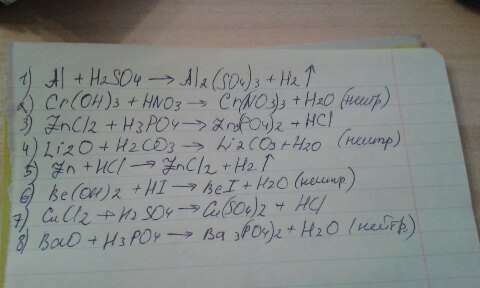 1) Al + H2SO4 → Al2(SO4)3 + H2↑
2) Cr(OH)3 + HNO3 → Cr(NO3)3 + H2O (нейтр)
3) ZnCl2 + H3PO4 → Zn3(PO4)2 + HCl
4) Li2O + H2CO3 → Li2CO3 + H2O (нейтр)
5) Zn + HCl → ZnCl2 + H2↑
6) Be(OH)2 + HI → BeI + H2O (нейтр)
7) CuCl2 + H2SO4 → Cu(SO4)2 + HCl
8) BaO + H3PO4 → Ba3PO4)2 + H2O (нейтр)